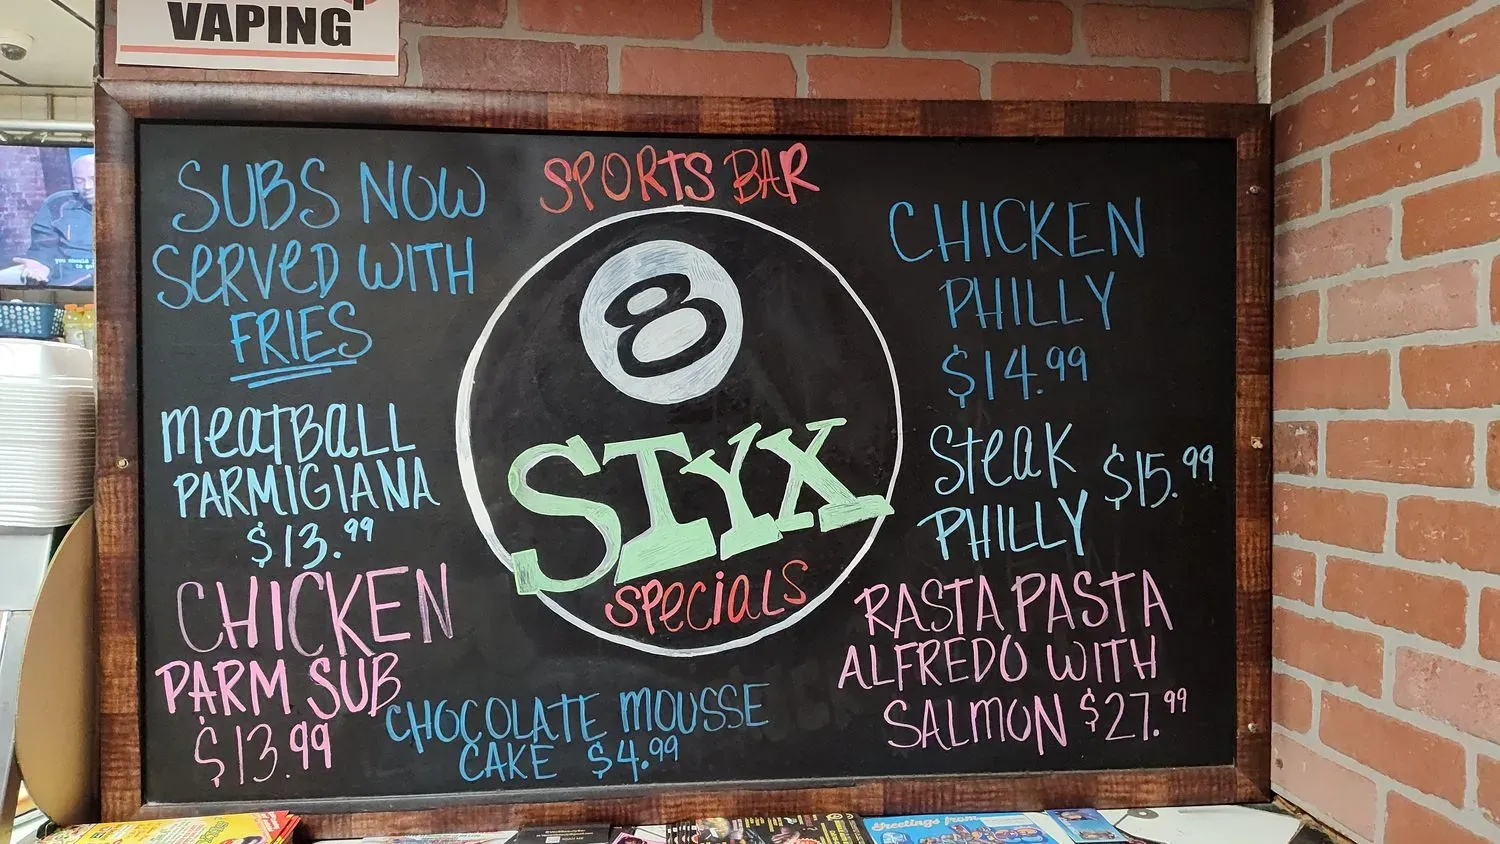 VAPING
SUBS NOW
SERVED WITH
FRIES
MEATBALL
PARMIGIANA
$13.99
CHICKEN
PARM SUB
$13.99
SPORTS BAR
8
STYX
SPECIALS
CHOCOLATE MOUSSE
CAKE $4.99
CHICKEN
PHILLY
$14.99
STEAK
PHILLY $15.99
RASTA PASTA
ALFREDO WITH
SALMON $27.99
Greetings from